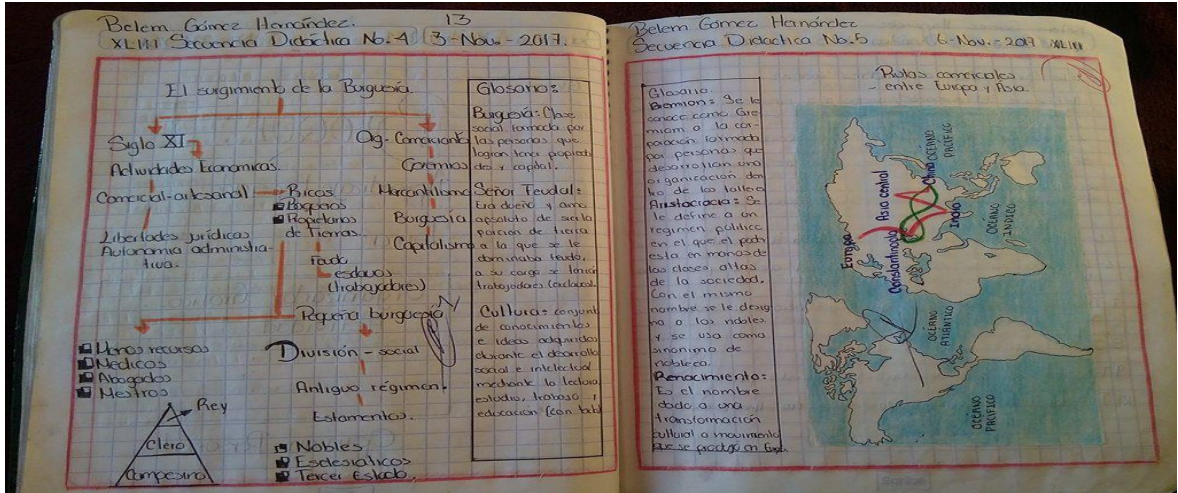 Belem Gómez Hernández.
13
XLIII Secuencia Didáctica No.4
3-Nov.-2017.
El surgimiento de la Burguesía.
Siglo XI
Actividades Economicas.
Comercial-artesanal
Libertades jurídicas
Autonomía administra-
tiva.
Ricos
Banqueros
Propietarios
de Tierras.
feudo
esclavos
(trabajadores)
Pequeña burguesía
Og-Comerciante
Gremios
Mercantilismo
Burguesía
Capitalismo
Menos recursos
Medicos
Abogados
Mestros
División-social
Antiguo régimen.
Estamentos.
Nobles
Eclesiáticos
Tercer Estado.
Rey
Clero
Campesino
Glosario:
Burguesía: Clase
social formada por
las personas que
logran tener propieda
des y capital.
Señor Feudal:
Era dueño y amo
absoluto de
porcion de tierra
a la que se le
dominaba feudo,
a su cargo se tenian
trabajadores (esclavos).
Cultura: conjunt
de conocimientos
e ideas adquiridos
durante el desarrollo
social e intelectual
mediante la lectura,
estudio, trabajo y
educacion
Belem Gómez Hernández
Secuencia Didactica No.5
6-Nov.-2017
XLIII
Rutas comerciales
- entre Europa y Asia.
Glosario.
Se le
conoce como Gre
miam a la cor-
poracion formada
por personas que
desarrollan una
organizacion den
tro de los talleres
Aristocracia: Se
le define a un
regimen politico
en el que el pode
esta en manos de
las clases altas
de la sociedad.
Con el mismo
nombre se le desig
na a los nobles
y se usa como
sinonimo de
nobleza.
Renacimiento:
Es el nombre
dado a una
transformación
cultural o movimiento
que se produjo en
Europa
Constantinopla
Asia central
China
India
OCÉANO
PACÍFICO
OCÉANO
INDICO
OCÉANO
ATLÁNTICO
OCÉANO
PACÍFICO